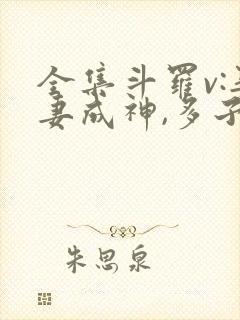 全集斗罗v:
妻成神,多子
朱思泉